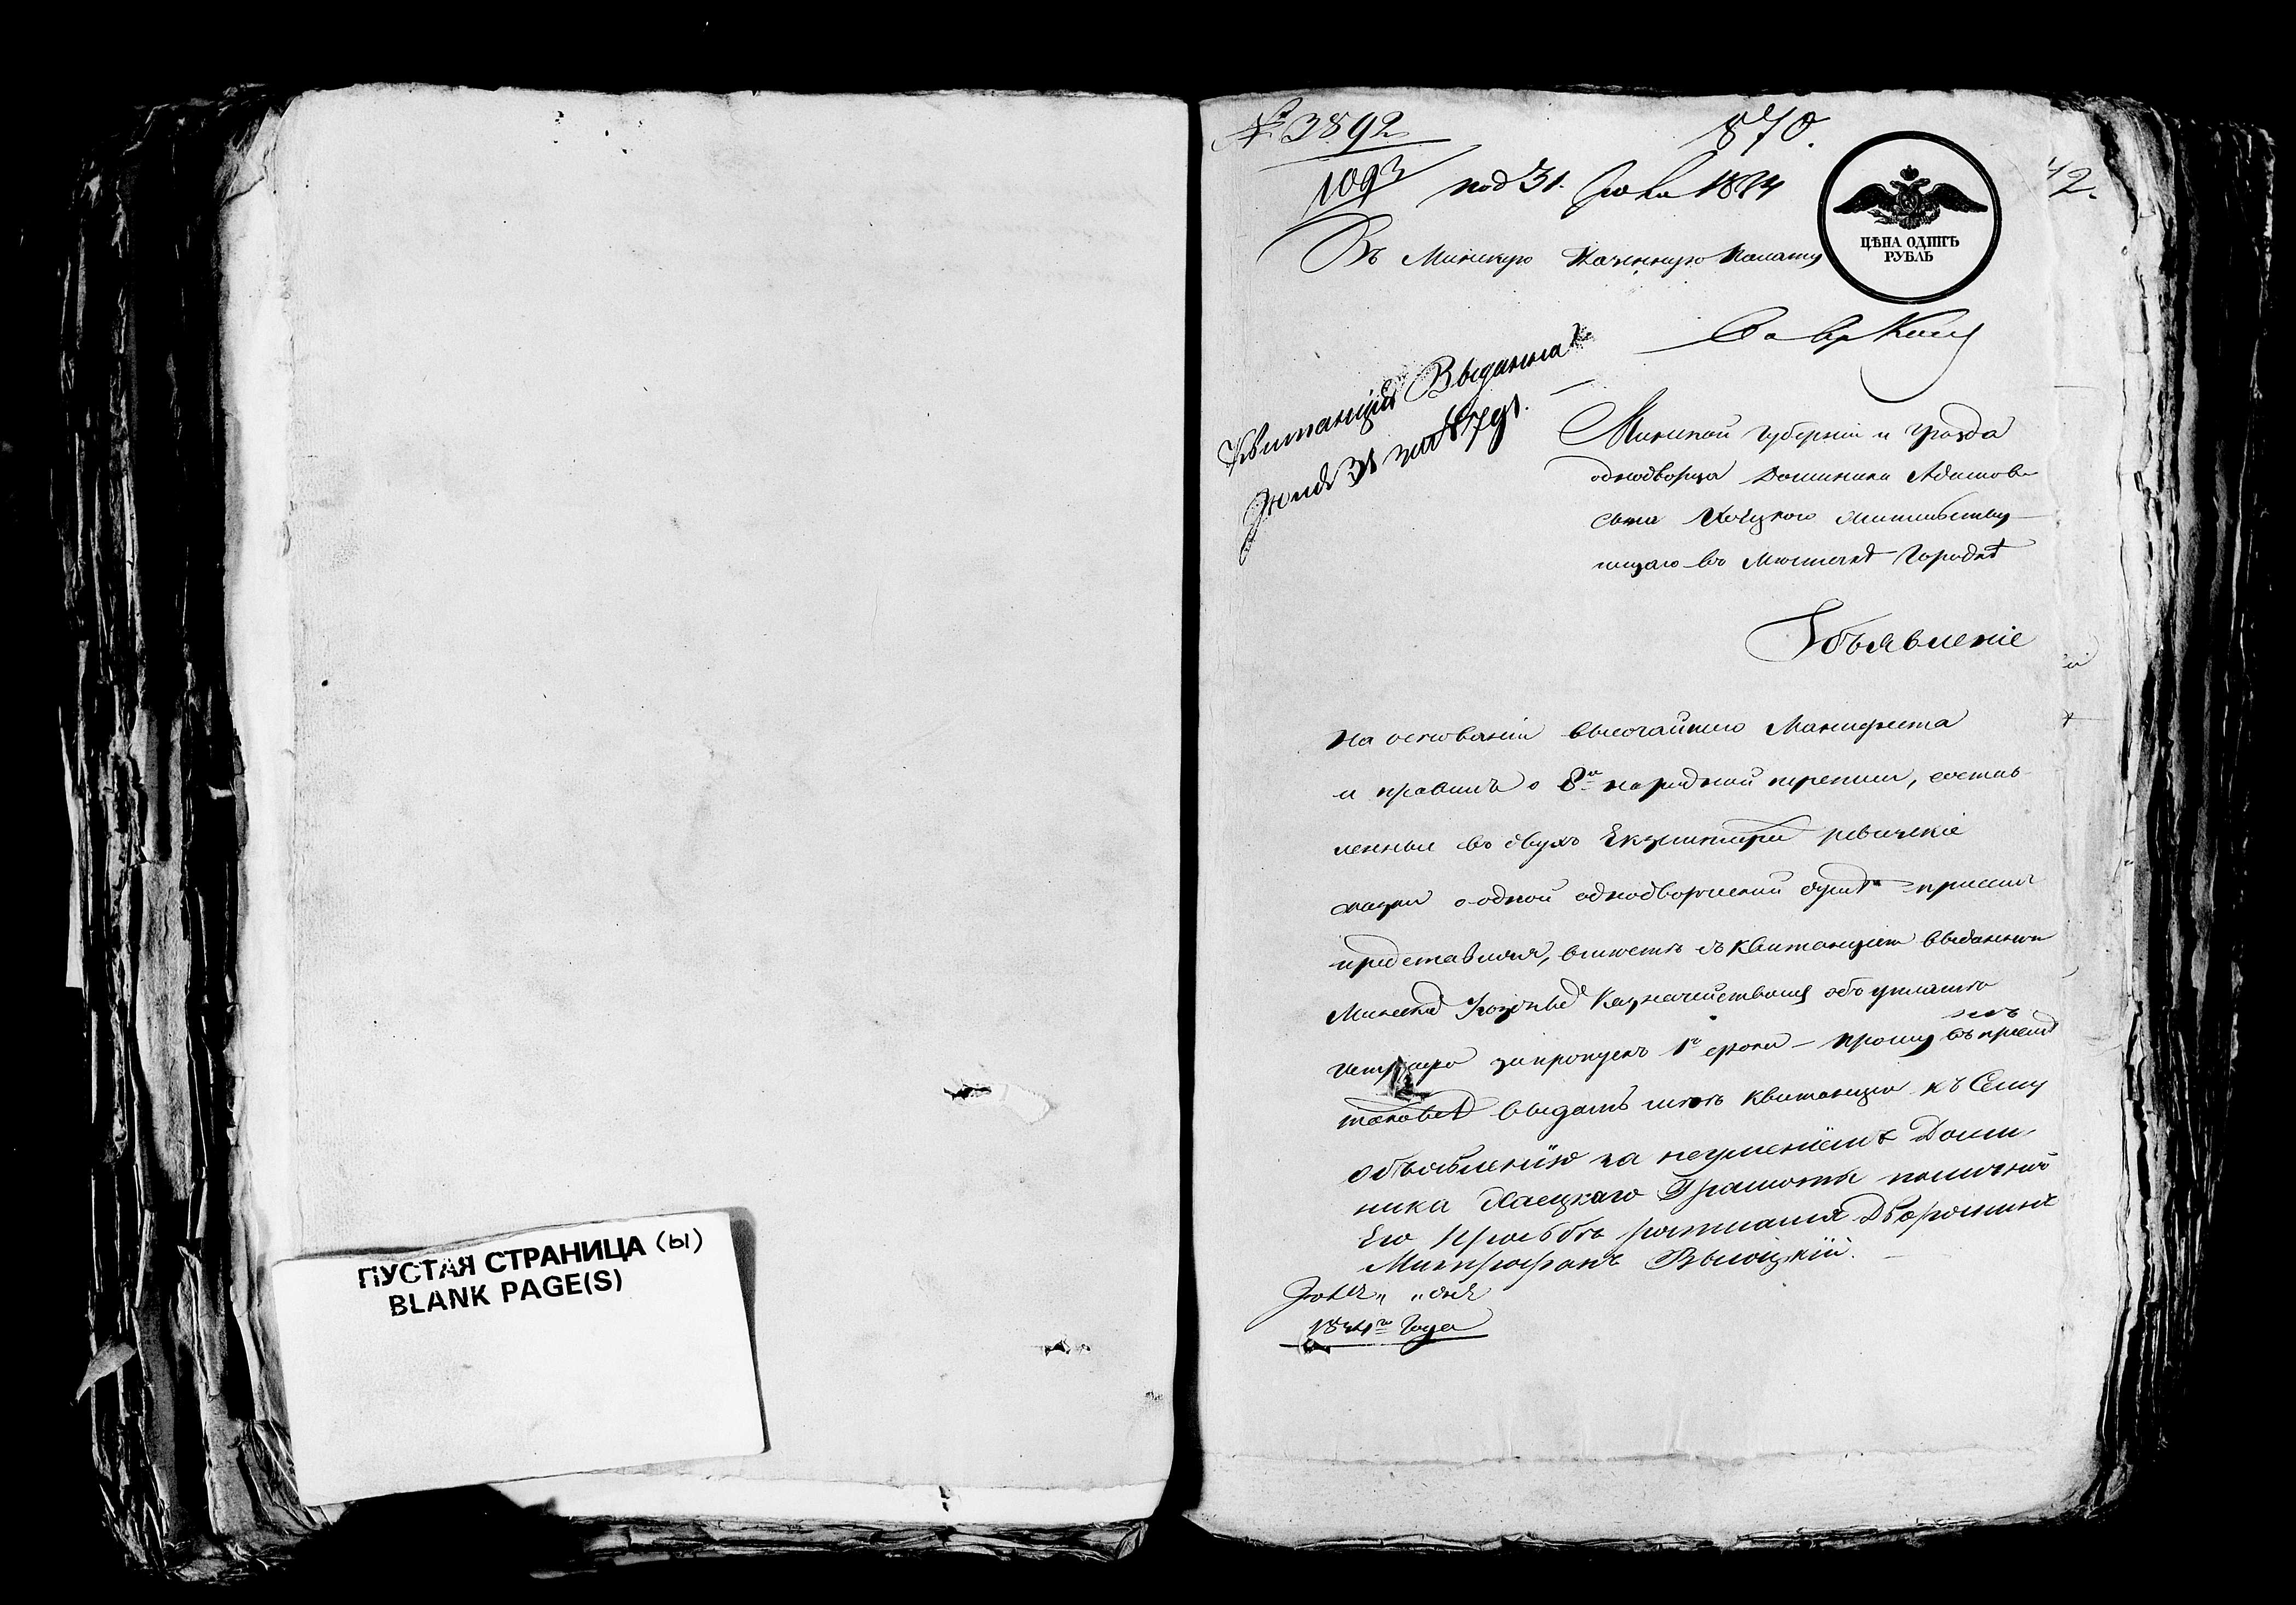 ПУСТАЯ СТРАНИЦА (ы)
BLANK PAGE(S)
№ 3892
870.
1093
под 31. Іюля 1834
42.
ЦѢНА ОДИНЪ
РУБЛЬ
Въ Минскую Казенную Палату
Квитанція Выданна
Іюля 31 за №
Минской Губерніи и Уѣзда
однодворца Доминика Адамова
сына жительству
ющаго въ Мѣстечкѣ Городкѣ
Объявленіе
На основаніи высочайшаго Манифеста
и правилъ о 8й народной переписи, состав
ленные въ двухъ Екземплярахъ ревизскіе
сказки о одной однодворческой душѣ при семъ
представляя, вмѣстѣ съ квитанціею выданною
Минскимъ Уезднымъ Казначействомъ объ уплатѣ
штрафа за пропускъ 1го срока – прошу въ пріемѣ
таковыхъ выдать мнѣ квитанцію къ Сему
объявленію за неуменіемъ Доми
ника Грамоты по личной
Его Прозьбѣ росписался Дворянинъ
Митрофанъ Высоцкій.
Іюля „ „ дня
1834го Года